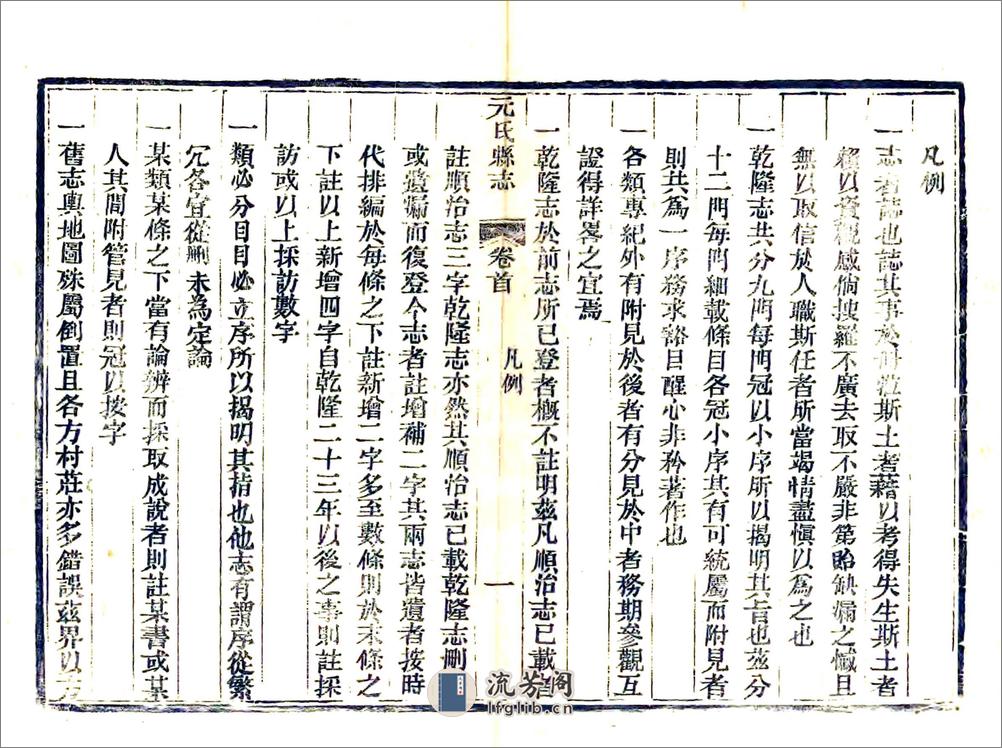 凡例
一志者誌也誌其事於冊蒞斯土者藉以考得失生斯土者
賴以資觀感倘搜羅不廣去取不嚴非第貽缺漏之憾且
無以取信於人職斯任者所當竭情盡慎以為之也
一乾隆志共分九門每門冠以小序所以揭明其旨也茲分
十二門每門細載條目各冠小序其有可統屬而附見者
則共為一序務求豁目醒心非矜著作也
一各類專紀外有附見於後者有分見於中者務期參觀互
證得詳畧之宜焉
元氏縣志
卷首
凡例
一
一乾隆志於前志所已登者概不註明茲凡順治志已載
註順治志三字乾隆志亦然其順治志已載乾隆志刪
或遺漏而復登今志者註增補二字其兩志皆遺者按時
代排編於每條之下註新增二字多至數條則於末條之
下註以上新增四字自乾隆二十三年以後之事則註採
訪或以上採訪數字
一類必分目目必立序所以揭明其指也他志有謂序從繁
冗各宜從刪未為定論
一某類某條之下當有論辨而採取成說者則註某書或某
人其間附管見者則冠以按字
一舊志輿地圖殊屬倒置且各方村莊亦多錯誤茲界以
流芳阁
lfglib.cn